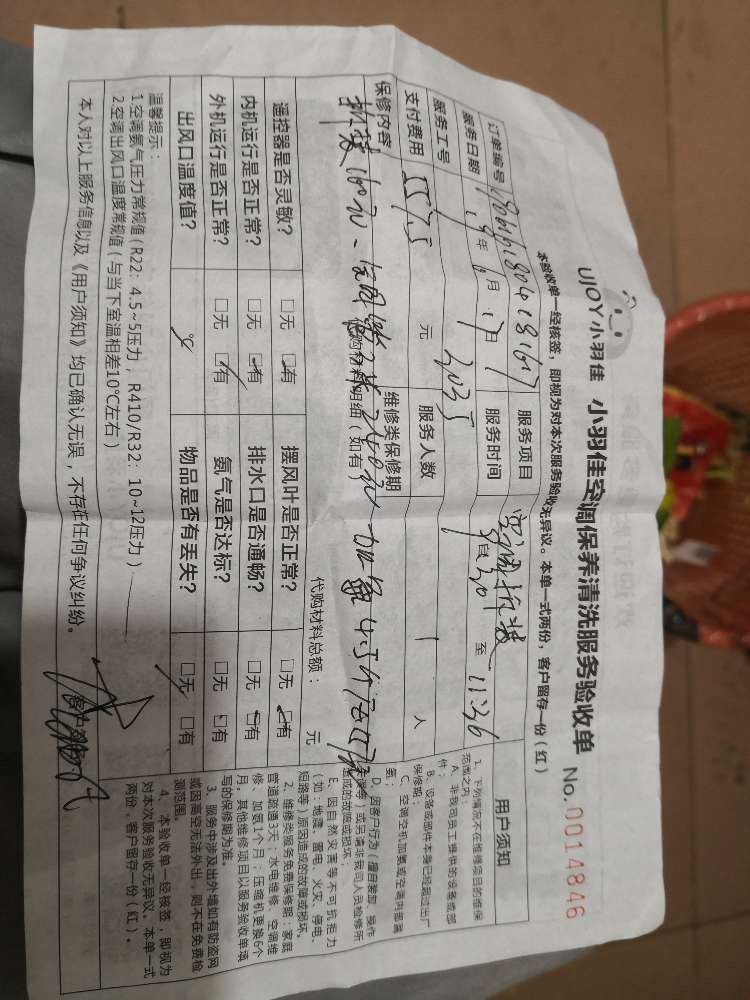 UJOY小羽佳 小羽佳空调保养清洗服务验收单 No. 0014846
本验收单一经核签，即视为对本次服务验收无异议。本单一式两份，客户留存一份（红）
订单编号 服务项目 空调拆装
服务日期 19年6月17日 服务时间 至 11:36
服务工号 3035 服务人数 1 人
支付费用 元 维修类保修期
保修内容
代购材料明细（如有）
代购材料总额： 元
遥控器是否灵敏？ □无 □有 摆风叶是否正常？ □无 □有
内机运行是否正常？ □无 □有 排水口是否通畅？ □无 □有
外机运行是否正常？ □无 □有 氨气是否达标？ □无 □有
出风口温度值？ ℃ 物品是否有丢失？ □无 □有
温馨提示：
1.空调氨气压力常规值（R22：4.5~5压力，R410/R32：10~12压力）
2.空调出风口温度常规值（与当下室温相差10℃左右）
本人对以上服务信息以及《用户须知》均已确认无误，不存在任何争议纠纷。 客户
用户须知
1、下列情况不在维修项目的维保
范围之内：
A、非我司员工提供的设备或部
件；
B、设备或部件本身已经超过出厂
保修期；
D、因客户行为（擅自装卸、操作
或另请非我司人员检修所
造成的故障或损坏；
E、因自然灾害等不可抗拒力
（如：地震、雷电、火灾、停电、
短路等）原因造成的故障或损坏。
2、维修类服务免费保修期：家庭
管道疏通3天；水电维修、空调维
修、加氨1个月；压缩机更换6个
月。其他维修项目以服务验收单填
写的保修期为准。
3、服务中涉及出外墙如有防盗网
或因高空无法外出，则不在免费检
测范围。
4、本验收单一经核签，即视为
对本次服务验收无异议。本单一式
两份，客户留存一份（红）。